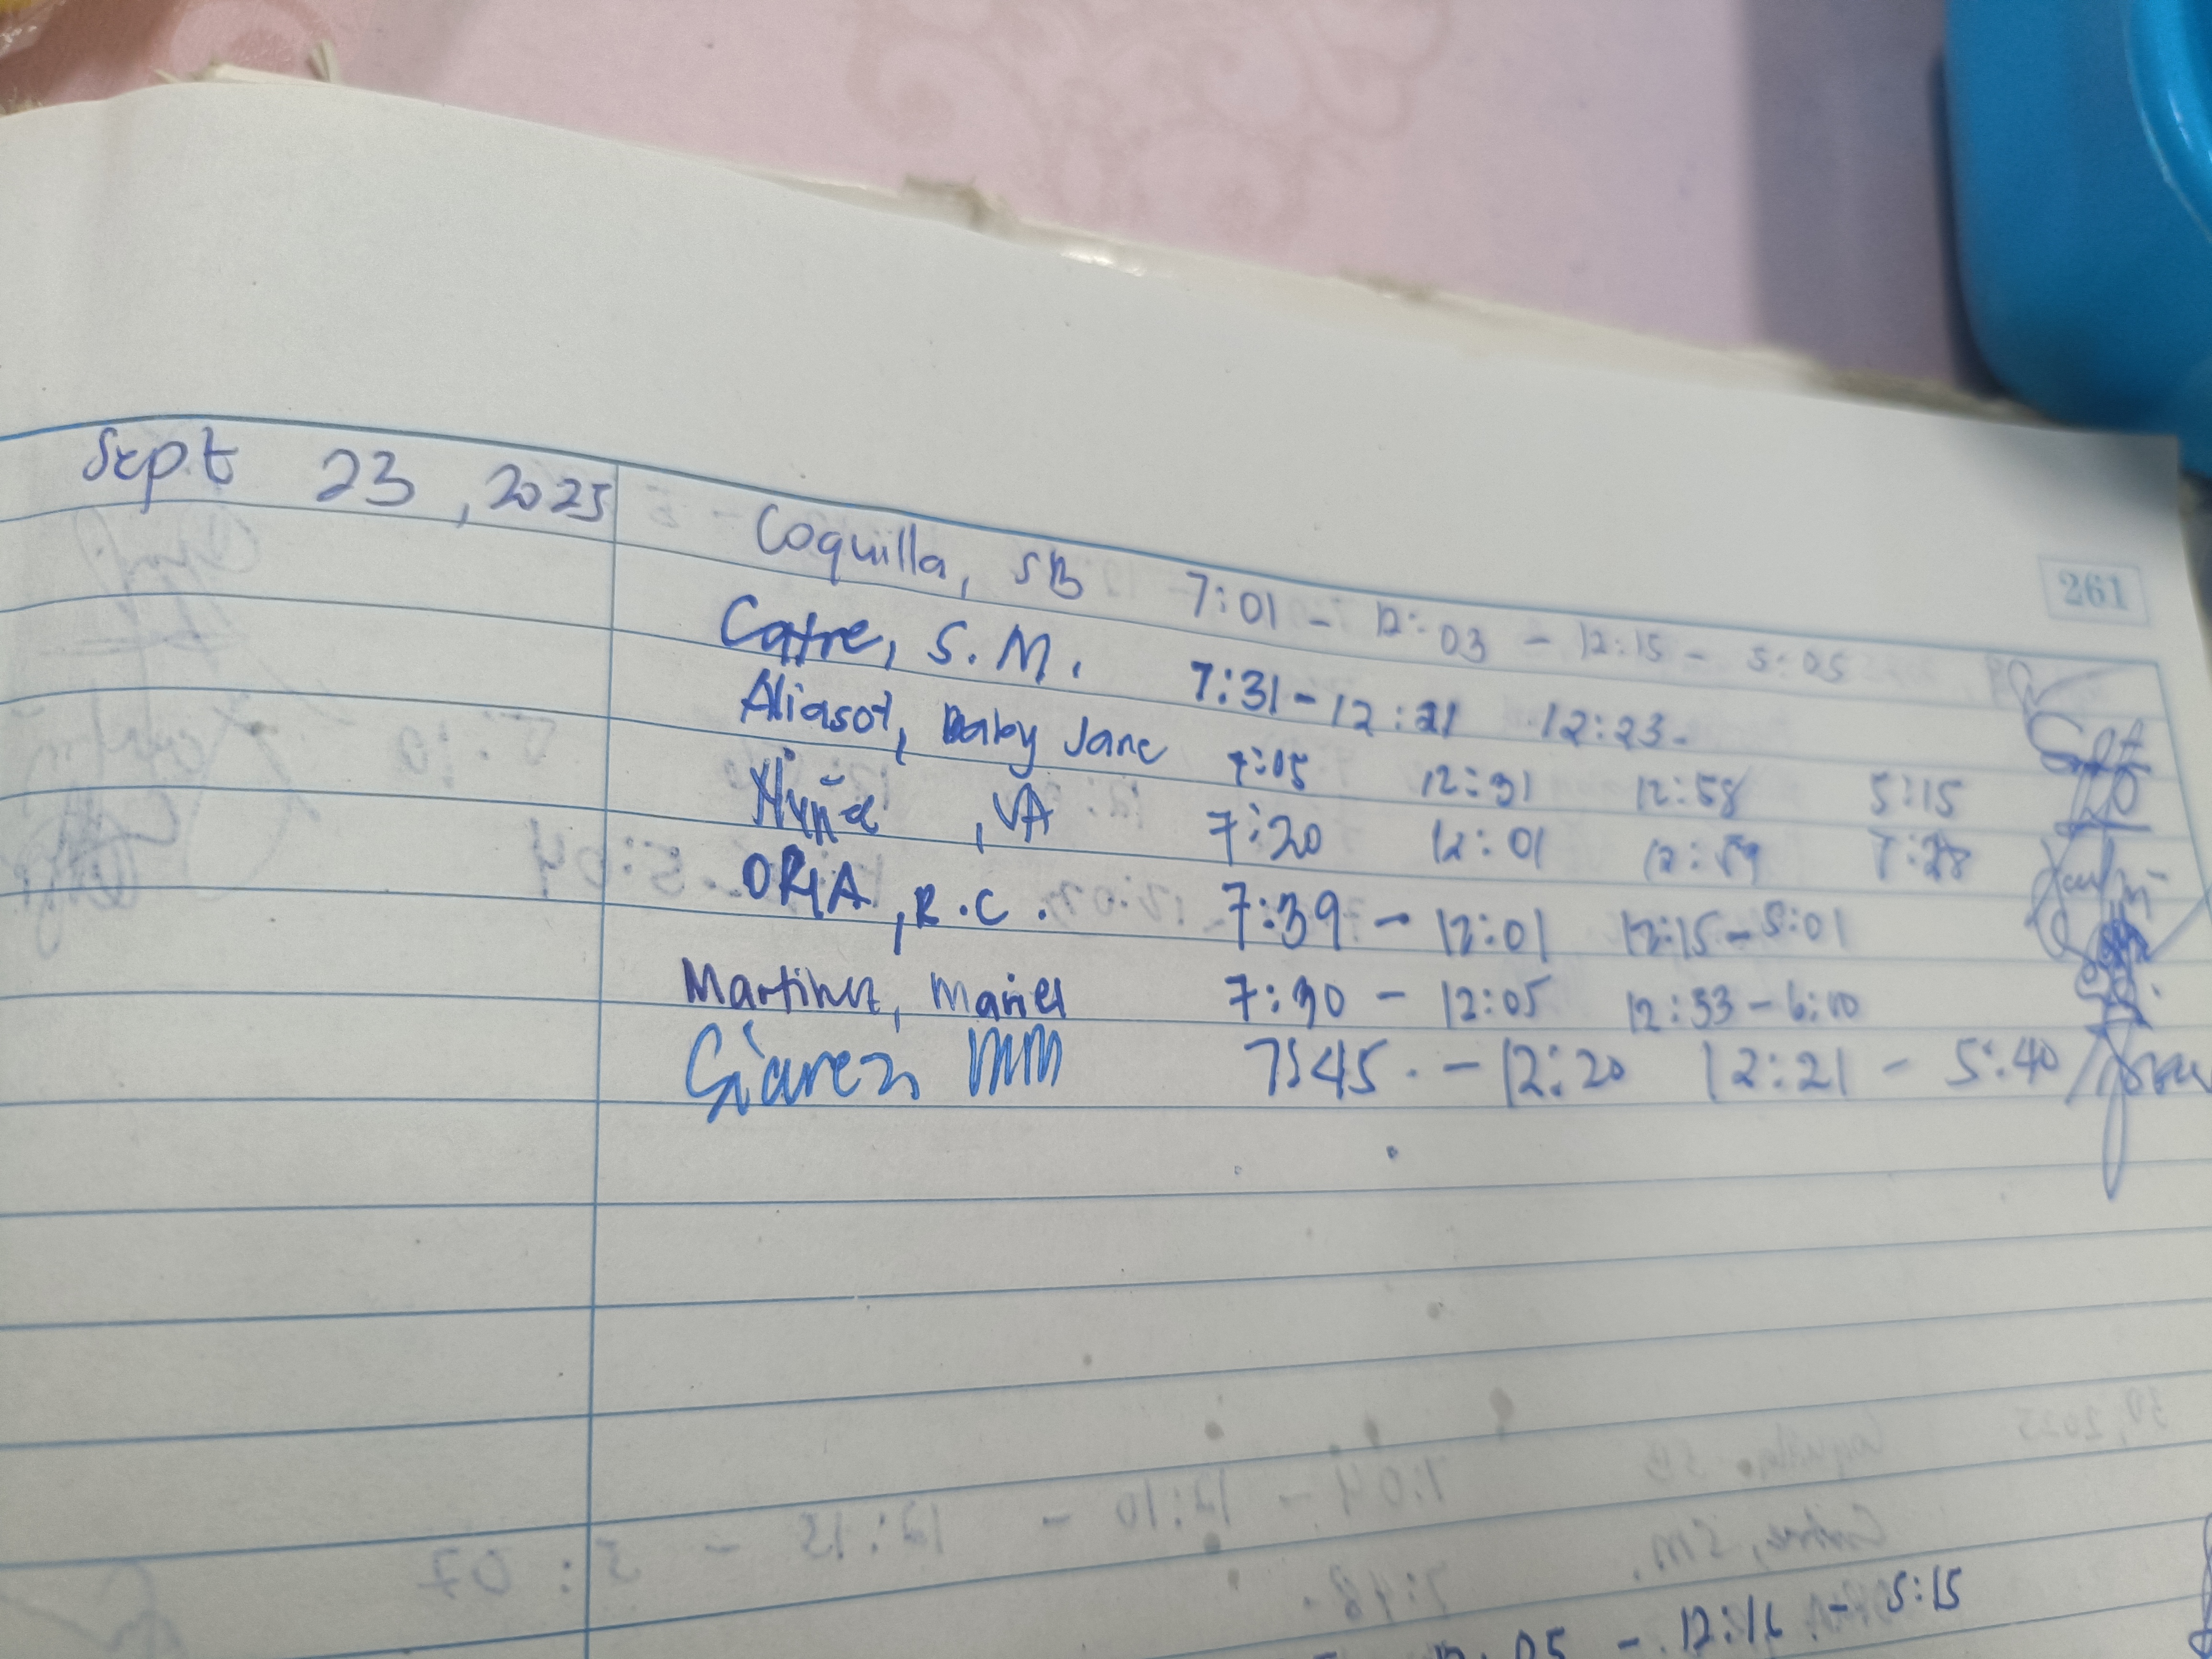 Sept 23, 2025
261
Coquilla, SB 7:01 - 12:03 - 12:15 - 5:05
Catre, S.M. 7:31 - 12:21 12:23-
Aliasot, Baby Jane 7:05 12:31 12:58 5:15
, VA 7:20 12:01 12:59
ORIA, R.C. 7:39 - 12:01 12:15 - 5:01
Martinez, Mariel 7:30 - 12:05 12:33 - 6:10
MM 7:45 - 12:20 12:21 - 5:40
05 - 12:16 - 5:15